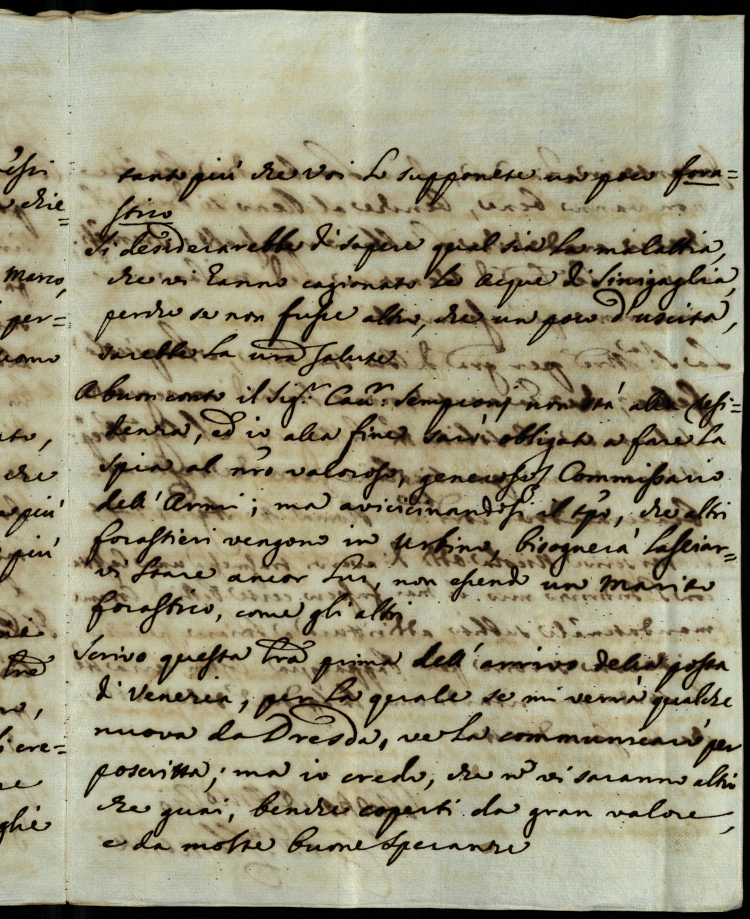 tanto più che voi lo supponete un poco fora=
stico
Si desiderarebbe di sapere qual sia la malattia,
che vi hanno cagionato le acque di Sinigaglia,
perche se non fusse altro, che un poco d'uscita,
sarebbe la vra salute
A buon conto il Sigr. Cavr. Sempronj non stà alla resi=
denza, ed io alla fine sarò obligato a fare la
spia al nro valoroso, generoso Commissario
dell'Armi; ma avicicinandosi il tpo, che altri
forastieri vengono in Urbino, bisognerà lasciar=
vi stare ancor lui, non essendo un marito
forastico, come gli altri
Scrivo questa lra prima dell'arrivo della posta
di Venezia, per la quale se mi verrà qualche
nuova da Dresda, ve la communicarò per
poscritta; ma io credo, che nō vi saranno altri
che guai, benche coperti da gran valore,
e da molte buone speranze
essri
chie=
Marco,
per=
uomo
che
più
più
lre
cre=